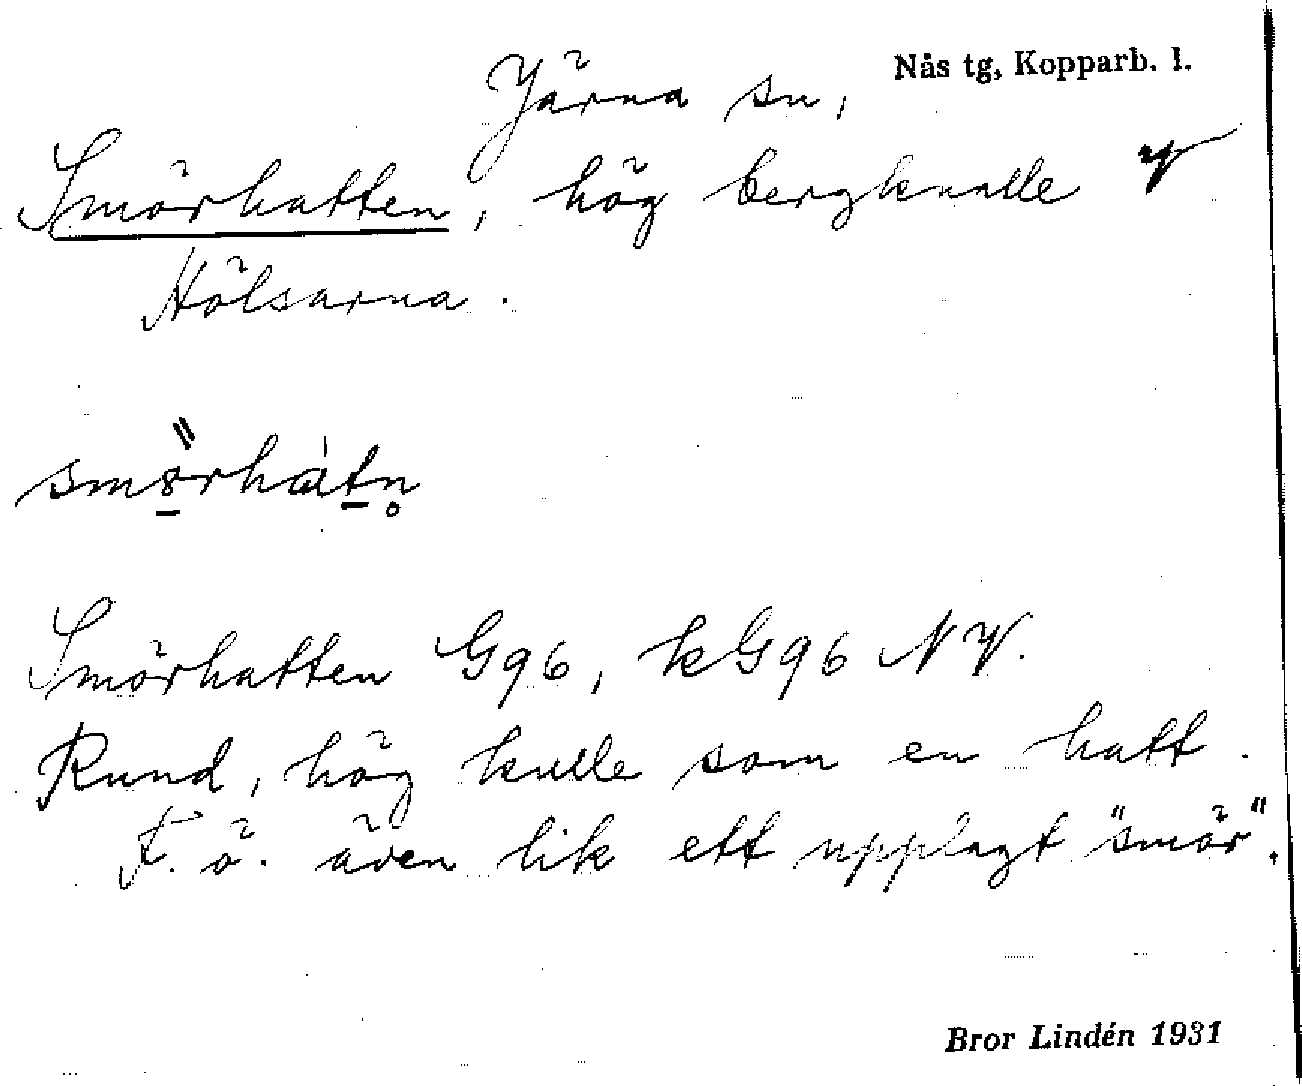 Nås tg, Kopparb. l.
Järna sn,
Smörhatten, hög bergknalle V
Hölsarna.
smörhàtn̥
Smörhatten G96, kG96 NV.
Rund, hög kulle som en hatt.
F. ö. även lik ett upplagt "smör".
Bror Lindén 1931